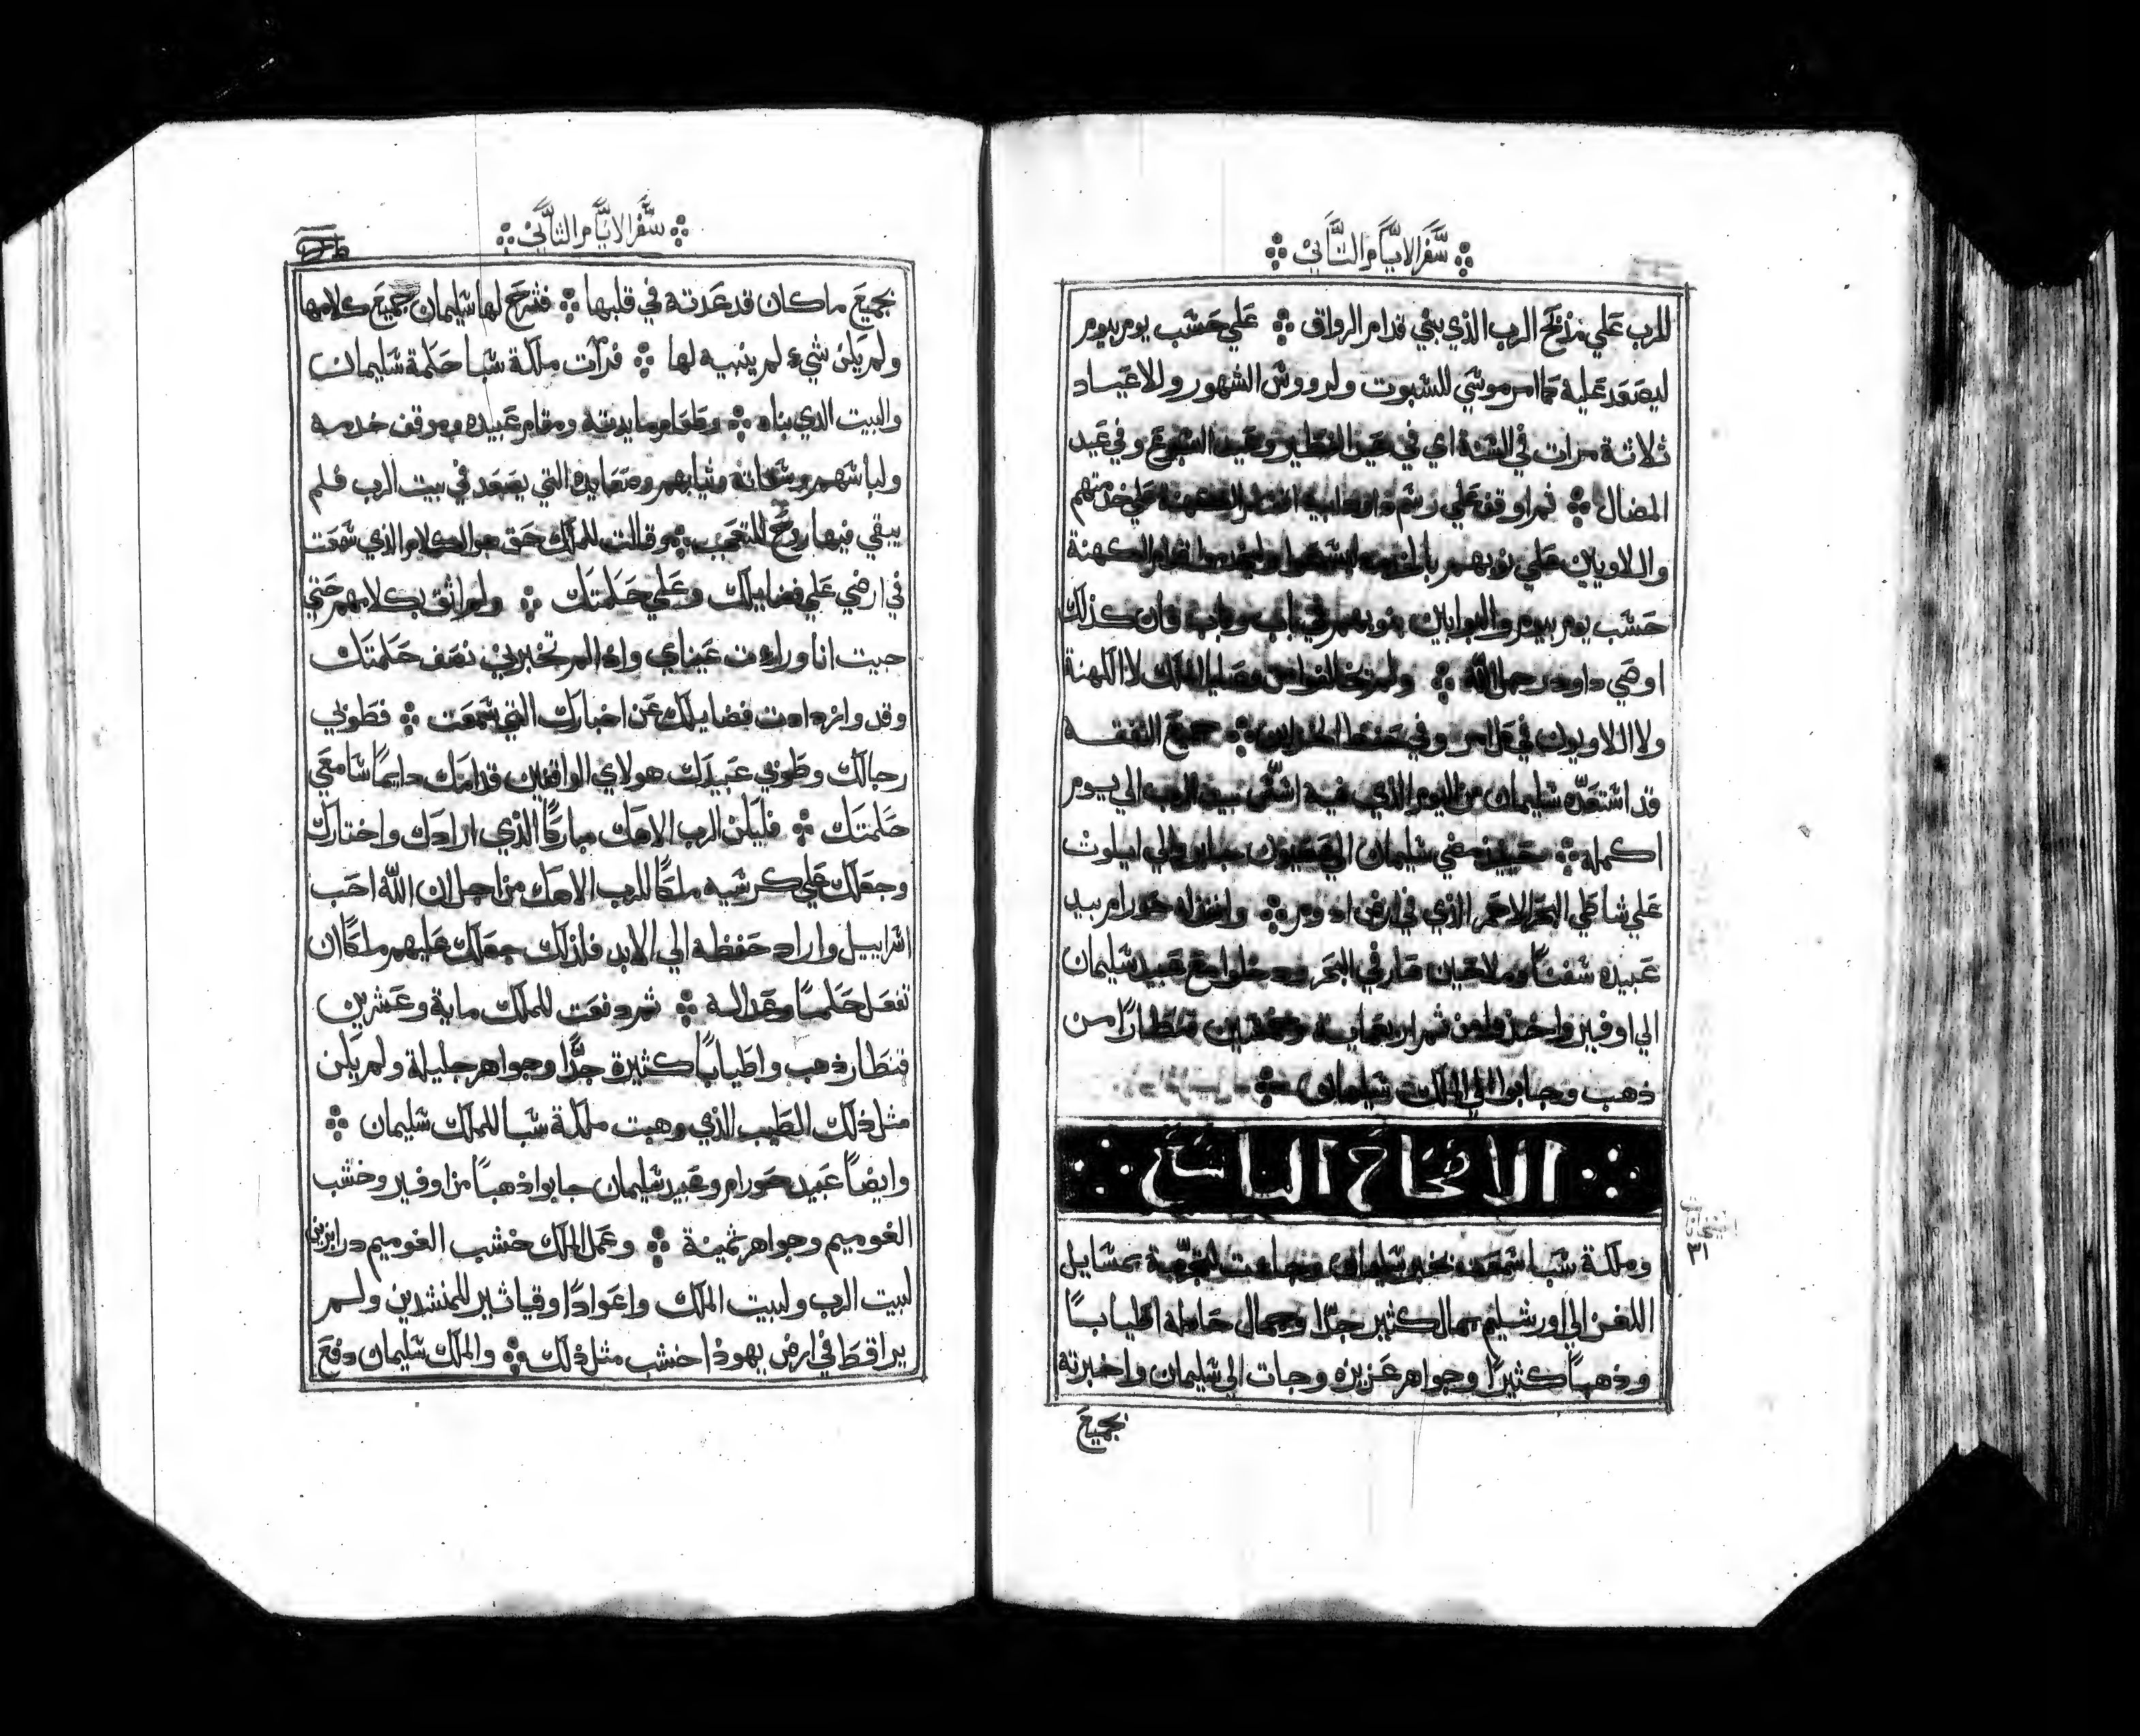 سفر الايام الثاني
للرب علي مذبح الرب الذي بني قدام الرواق علي حسب يوم بيوم
ليصعد عليه كما امر موسي للسبوت ولرووش الشهور وللاعياد
ثلاثة مرات في السنة اي في عيد الفطير وعيد السبوع وفي عيد
المضال ثم اوقف علي رسم داود ابيه الكهنة علي خدمتهم
واللاويين علي نوبهم الكهنة
حسب يوم بيوم والبوابين بنوبهم في باب وباب فان كذلك
اوصي داود رجل الله ولم يخالفوا من وصايا الملك لا الكهنة
ولا اللاويون في كل امر وفي حفظ الخزاين جميع النفقه
قد استعده سليمان من اليوم الذي فيه اسس بيت الرب الي يوم
اكمله حينيذ مضي سليمان الي عصيون جابر والي ايلوت
علي شاطي البحر الاحمر الذي في ارض ادوم وانفذ له حورام بيد
عبيده سفنا وملاحين في البحر ودخلوا مع عبيد سليمان
الي اوفير واخذوا من ثم اربعماية وخمسين قنطارا من
ذهب وجابوا الي الملك سليمان
الاصحاح التاسع
وملكة سبا سمعت بخبر سليمان وجاءت لتجربه بمسايل
اللغز الي اورشليم بمال كثير جدا وجمال حامله اطيابا
وذهبا كثيرا وجواهر عزيزه وجات الي سليمان واخبرته
بجميع
٣١
سفر الايام الثاني
بجميع ما كان قد عدته في قلبها فشرح لها سليمان جميع كلامها
ولم يكن شيء لم ينهيه لها فرات ملكة سبا حكمة سليمان
والبيت الذي بناه وطعام مايدته ومقام عبيده وموقف خدمه
ولباسهم وسقاته وثيابهم وصعايده التي يصعد في بيت الرب فلم
يبقي فيها روح للتعجب وقالت للملك حق هو الكلام الذي سمعت
في ارضي علي فضايلك وعلي حكمتك ولم اثق بكلامهم حتي
جيت انا وراءت عيناي واذا لم تخبرني نصف حكمتك
وقد وازدادت فضايلك عن اخبارك التي سمعت فطوبي
رجالك وطوبي عبيدك هولاي الواقفين قدامك دايما سامعي
حكمتك فليكن الرب الاهك مباركا الذي ارادك واختارك
وجعلك علي كرسيه ملكا للرب الاهك من اجل ان الله احب
اسراييل واراد حفظه الي الابد فلذلك جعلك عليهم ملكا ان
تفعل حكما وعداله ثم دفعت للملك ماية وعشرين
قنطار ذهب واطيابا كثيرة جدا وجواهر جليلة ولم يكن
مثل ذلك الطيب الذي وهبت ملكة سبا للملك سليمان
وايضا عبيد حورام وعبيد سليمان جابوا ذهبا من اوفير وخشب
الغوميم وجواهر ثمينة وعمل الملك خشب الغوميم درابزيني
لبيت الرب ولبيت الملك واعوادا وقياثير للمنشدين ولم
يرا قط في ارض يهوذا خشب مثل ذلك والملك سليمان دفع